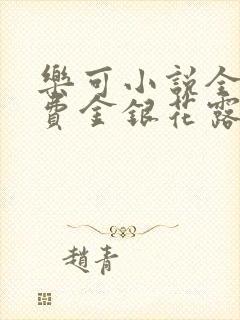 樂可小說全
費金銀花露
趙青